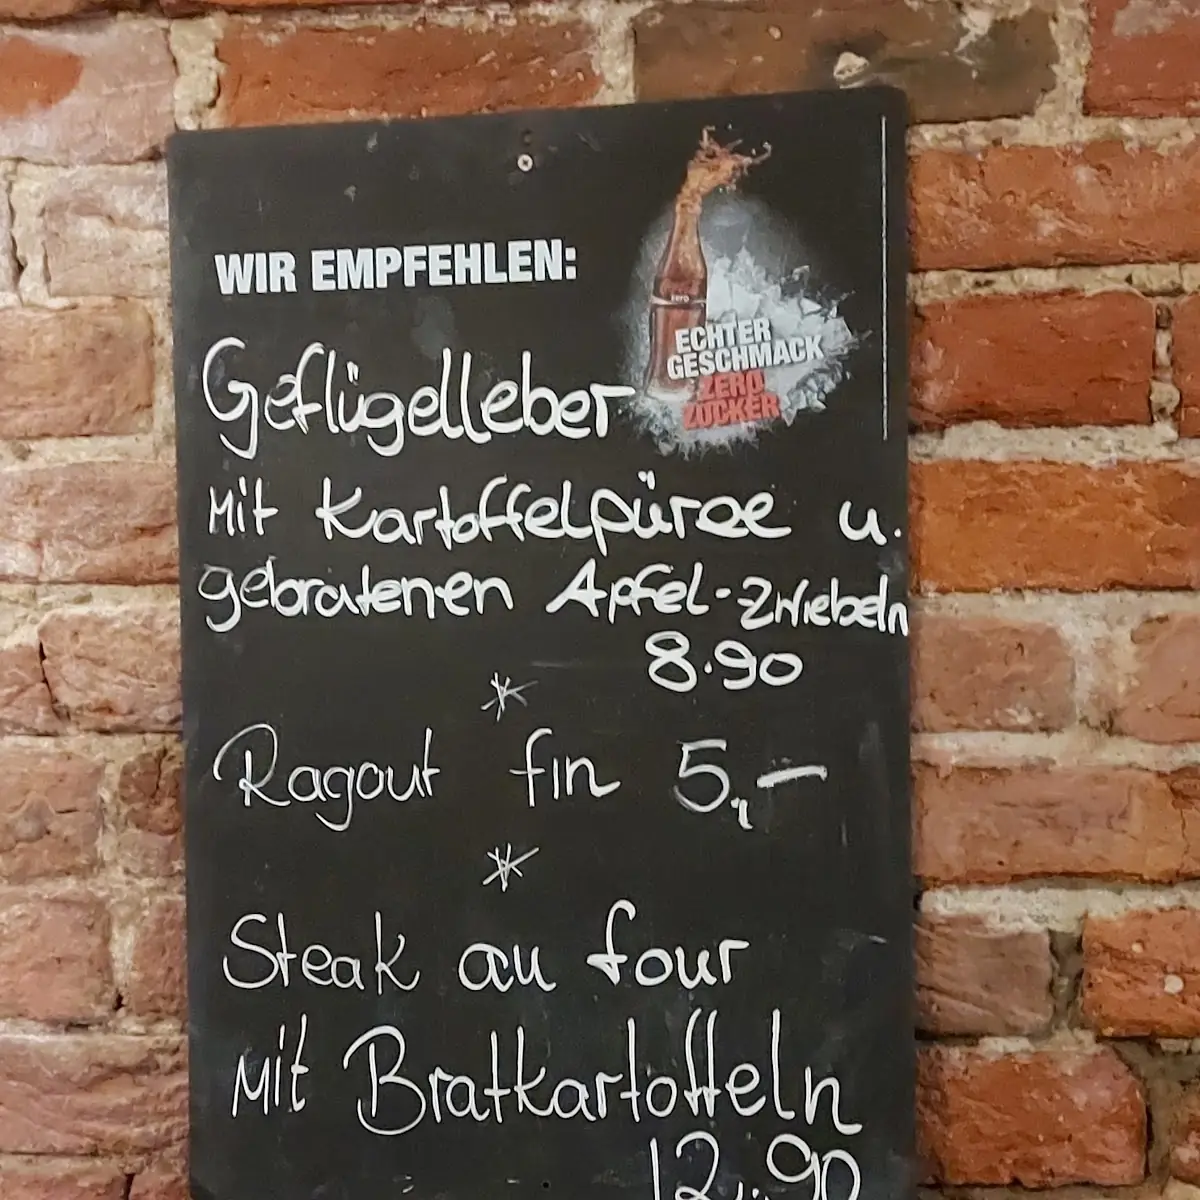 WIR EMPFEHLEN:
ZERO
ECHTER
GESCHMACK
ZERO
ZUCKER
Geflügelleber
mit Kartoffelpüree u.
gebratenen Apfel-Zwiebeln
8.90
*
Ragout fin 5,-
*
Steak au four
mit Bratkartoffeln
12,90